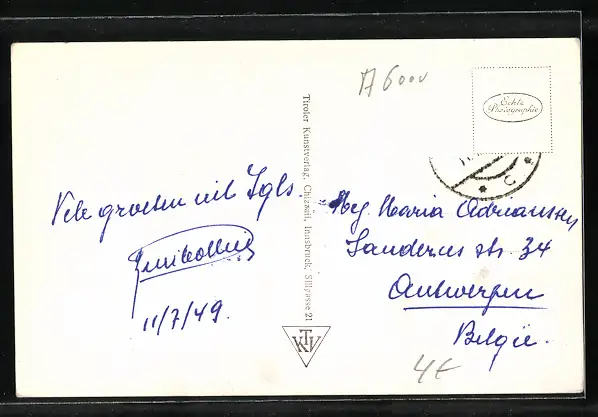 A 6000
Echte
Photographie
Vele groeten uit Igls.
11/7/49.
Tiroler Kunstverlag, Chizzali, Innsbruck, Sillgasse 21
TKV
Mej. Maria Adriaenssen
Sanderus str. 34
Antwerpen
België.
4€